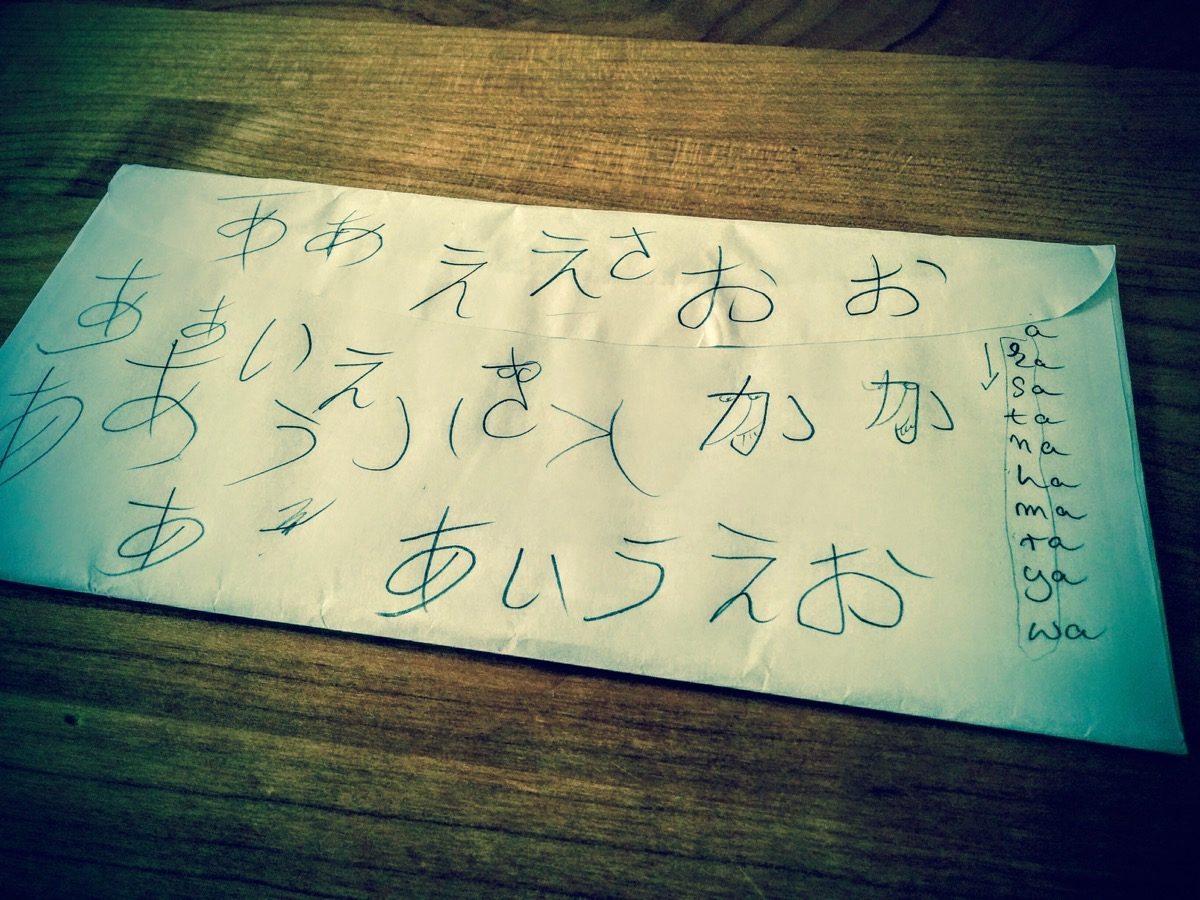 あ あ え え さ お お
あ あ い え き か か
あ あ う
あ あ い う え お
a
ka
sa
ta
na
ha
ma
ra
ya
wa